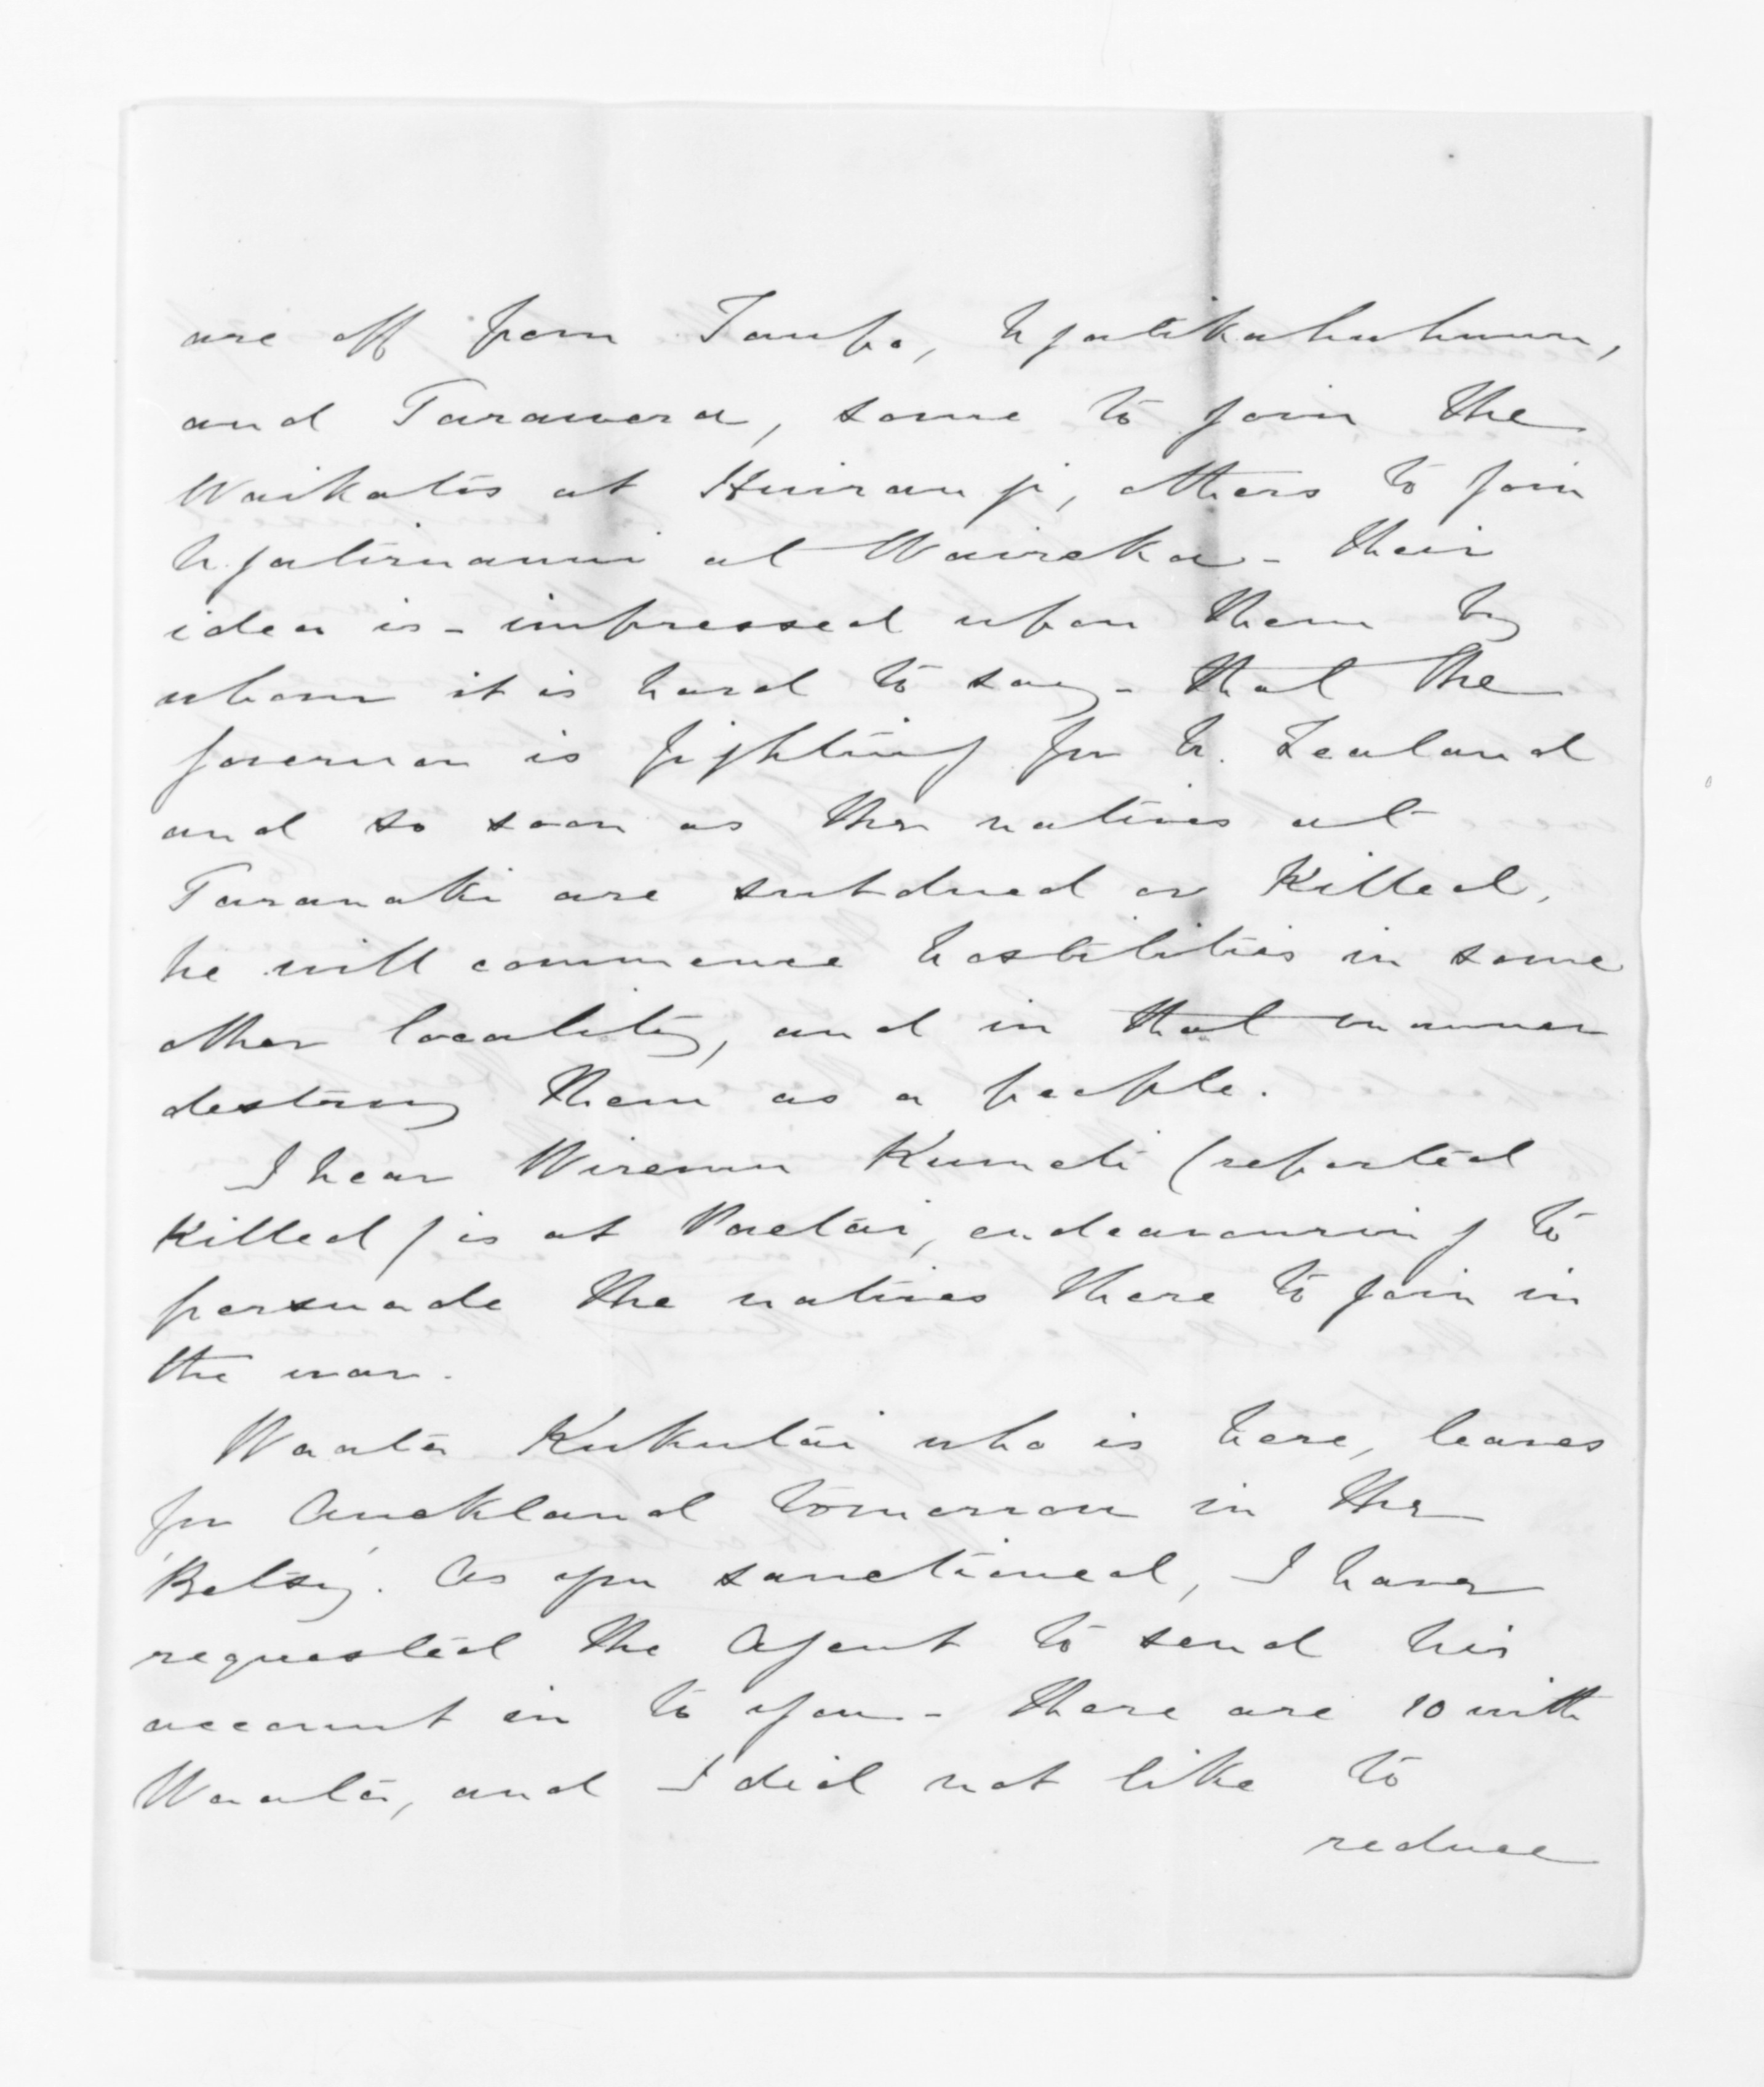 are off from Taupo, Ngatikahuhunu,
and Tarawera, some to join the
Waikatos at Huirangi, others to join
Ngatiruanui at Waireka - their
idea is - impressed upon them by
whom it is hard to say - that the
Governor is fighting for N. Zealand
and so soon as the natives at
Taranaki are subdued or killed,
he will commence hostilities in some
other locality, and in that manner
destroy them as a people.
I hear Wiremu Kumeti (reported
killed) is at Pactai, endeavouring to
persuade the natives there to join in
the war.
Waata Kukutai who is here, leaves
for Auckland tomorrow in the
'Betsy'. As you sanctioned, I have
requested the Agent to send his
account in to you - there are 10 with
Waata, and I did not like to
reduce